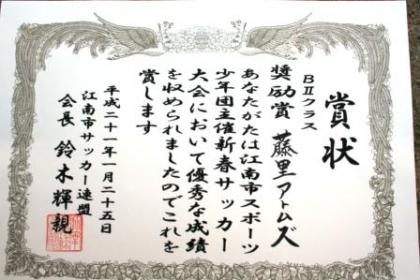 賞状
BⅡクラス
奨励賞 藤里アトムズ
あなたがたは江南市スポーツ
少年団主催新春サッカー
大会において優秀な成績
を収められましたのでこれを
賞します
平成二十一年一月二十五日
江南市サッカー連盟
会長 鈴木輝親